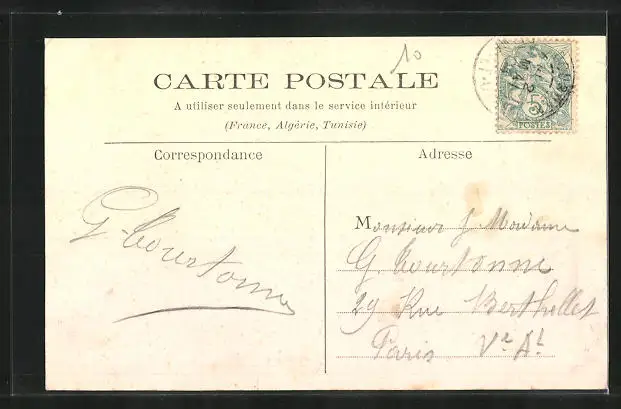 10
CARTE POSTALE
A utiliser seulement dans le service intérieur
(France, Algérie, Tunisie)
5
POSTES
Correspondance
Adresse
G. Courtonne
Monsieur & Madame
G Courtonne
29 Rue Berthollet
Paris Ve At